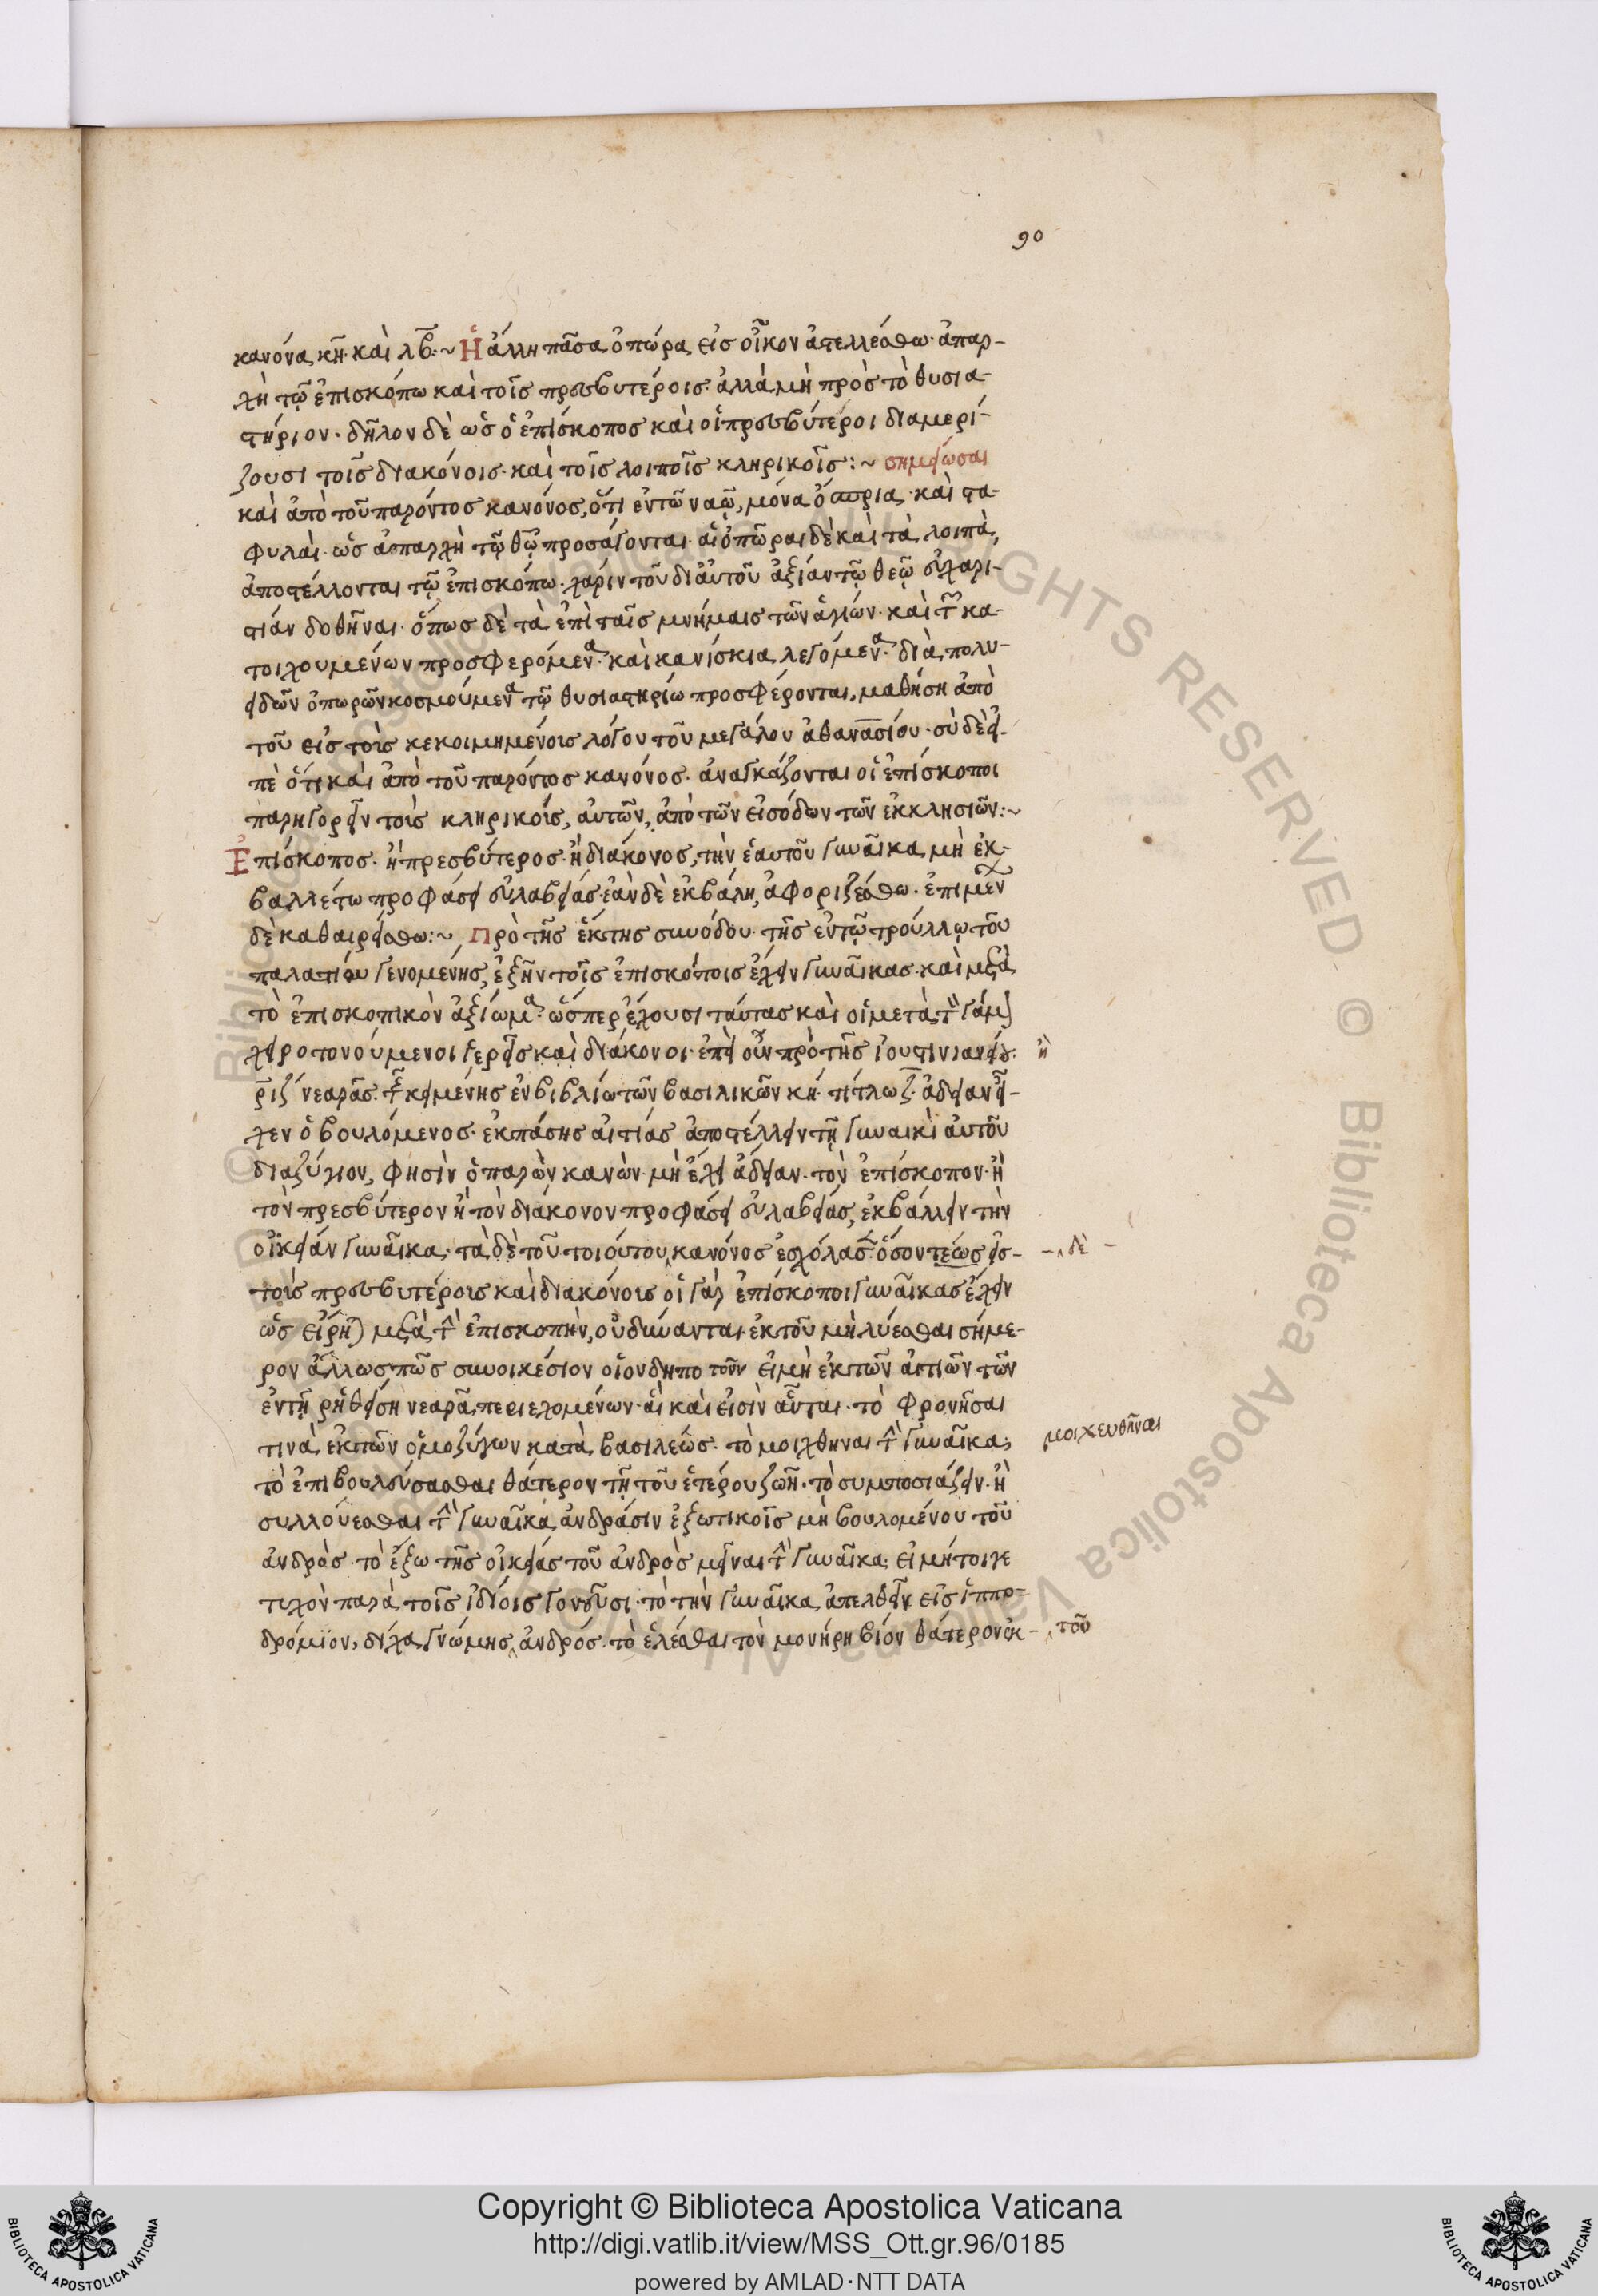 90
κανόνα κη̄. καὶ λβ̄:~ Ἡ ἄλλη πᾶσα ὀπώρα εἰς οἶκον ἀποστελλέσθω. ἀπαρ-
χὴ τῷ ἐπισκόπω καὶ τοῖς πρεσβυτέροις. ἀλλὰ μὴ πρὸς τὸ θυσια-
στήριον. δῆλον δὲ ὡς ὁ ἐπίσκοπος καὶ οἱ πρεσβύτεροι διαμερί-
ζουσι τοῖς διακόνοις. καὶ τοῖς λοιποῖς κληρικοῖς:~ σημείωσαι
καὶ ἀπὸ τοῦ παρόντος κανόνος, ὅτι ἐν τῶ ναῷ, μόνα ὄσπρια. καὶ στα-
φυλαὶ. ὡς ἀπαρχὴ τῷ θῶ προσάγονται. αἱ ὀπῶραι δὲ καὶ τὰ λοιπὰ,
ἀποστέλλονται τῷ ἐπισκόπω. χάριν τοῦ δι αὐτοῦ ἀξίαν τῷ θεῷ εὐχαρι-
στίαν δοθῆναι. ὅπως δὲ τὰ ἐπὶ ταῖς μνήμαις τῶν ἁγίων. καὶ τῶν κα-
τοιχουμένων προσφερόμενα. καὶ κανίσκια λεγόμενα. διὰ πολυ-
ειδῶν ὀπωρῶν κοσμούμενα τῷ θυσιαστηρίω προσφέρονται, μαθήση ἀπὸ
τοῦ εἰς τοὺς κεκοιμημένοις λόγου τοῦ μεγάλου ἀθανασίου. σὺ δὲ εἰ-
πὲ ὅτι καὶ ἀπὸ τοῦ παρόντος κανόνος. ἀναγκάζονται οἱ ἐπίσκοποι
παρηγορεῖν τοὺς κληρικοὺς, αὐτῶν, ἀπὸ τῶν εἰσόδων τῶν ἐκκλησιῶν:~
Ἐπίσκοπος. ἢ πρεσβύτερος. ἢ διάκονος, τὴν ἑαυτοῦ γυναῖκα μὴ ἐκ-
βαλλέτω προφάσει εὐλαβείας. ἐὰν δὲ ἐκβάλη, ἀφοριζέσθω. ἐπιμένων
δὲ καθαιρείσθω:~ Πρὸ τῆς ἕκτης συνόδου. τῆς ἐν τῷ τρούλλῳ τοῦ
παλατίου γενομένης, ἐξῆν τοῖς ἐπισκόποις ἔχειν γυναῖκας. καὶ μετὰ
τὸ ἐπισκοπικὸν ἀξίωμα. ὥσπερ ἔχουσι ταύτας καὶ οἱ μετὰ τὸν γάμον
χειροτονούμενοι ἱερεῖς καὶ διάκονοι. ἐπεὶ οὖν πρὸ τῆς ἰουστινιανείου. ἢ
ριζ νεαρᾶς. τῆς κειμένης ἐν βιβλίω τῶν βασιλικῶν κη. τίτλω ζ. ἄδειαν εἶ-
χεν ὁ βουλόμενος. ἐκ πάσης αἰτίας ἀποστέλλειν τῇ γυναικὶ αὐτοῦ
διαζύγιον, φησὶν ὁ παρὼν κανὼν. μὴ ἔχει ἄδειαν. τὸν ἐπίσκοπον. ἢ
τὸν πρεσβύτερον ἢ τὸν διάκονον προφάσει εὐλαβείας, ἐκβάλλειν τὴν
οἰκείαν γυναῖκα. τὰ δὲ τοῦ τοιούτου κανόνος ἐσχόλασαν. ὅσον τέως εἰς- -δὲ-
τοὺς πρεσβυτέροις καὶ διακόνοις οἱ γὰρ ἐπίσκοποι γυναῖκας ἔχειν
ὡς εἴρηται μετὰ τὴν ἐπισκοπὴν, οὐ δύνανται. ἐκ τοῦ μὴ λύεσθαι σήμε-
ρον ἄλλως πως συνοικέσιον οἱονδηποτοῦν εἰ μὴ ἐκ τῶν αἰτιῶν τῶν
ἐν τῇ ῥηθείσῃ νεαρᾶ περιεχομένων. αἳ καὶ εἰσὶν αὗται. τὸ φρονῆσαι
τινὰ ἐκ τῶν ὁμοζύγων κατὰ βασιλέως. τὸ μοιχθηναι τὴν γυναῖκα, μοιχευθῆναι
τὸ ἐπιβουλεύσασθαι θάτερον τῇ τοῦ ἑτέρου ζωῇ. τὸ συμποσιάζειν. ἢ
συλλούεσθαι τὴν γυναῖκα ἀνδράσιν ἐξωτικοῖς μὴ βουλομένου τοῦ
ἀνδρὸς. τὸ ἔξω τῆς οἰκείας τοῦ ἀνδρὸς μεῖναι τὴν γυναῖκα. εἰ μήτοιγε
τυχὸν παρὰ τοῖς ἰδίοις γονεῦσι. τὸ τὴν γυναῖκα ἀπελθεῖν εἰς ἱππο-
δρόμιον, δίχα γνώμης ἀνδρός. τὸ ἑλέσθαι τὸν μονήρη βίον θάτερον ἐκ- τοῦ
Copyright © Biblioteca Apostolica Vaticana
http://digi.vatlib.it/view/MSS_Ott.gr.96/0185
powered by AMLAD·NTT DATA